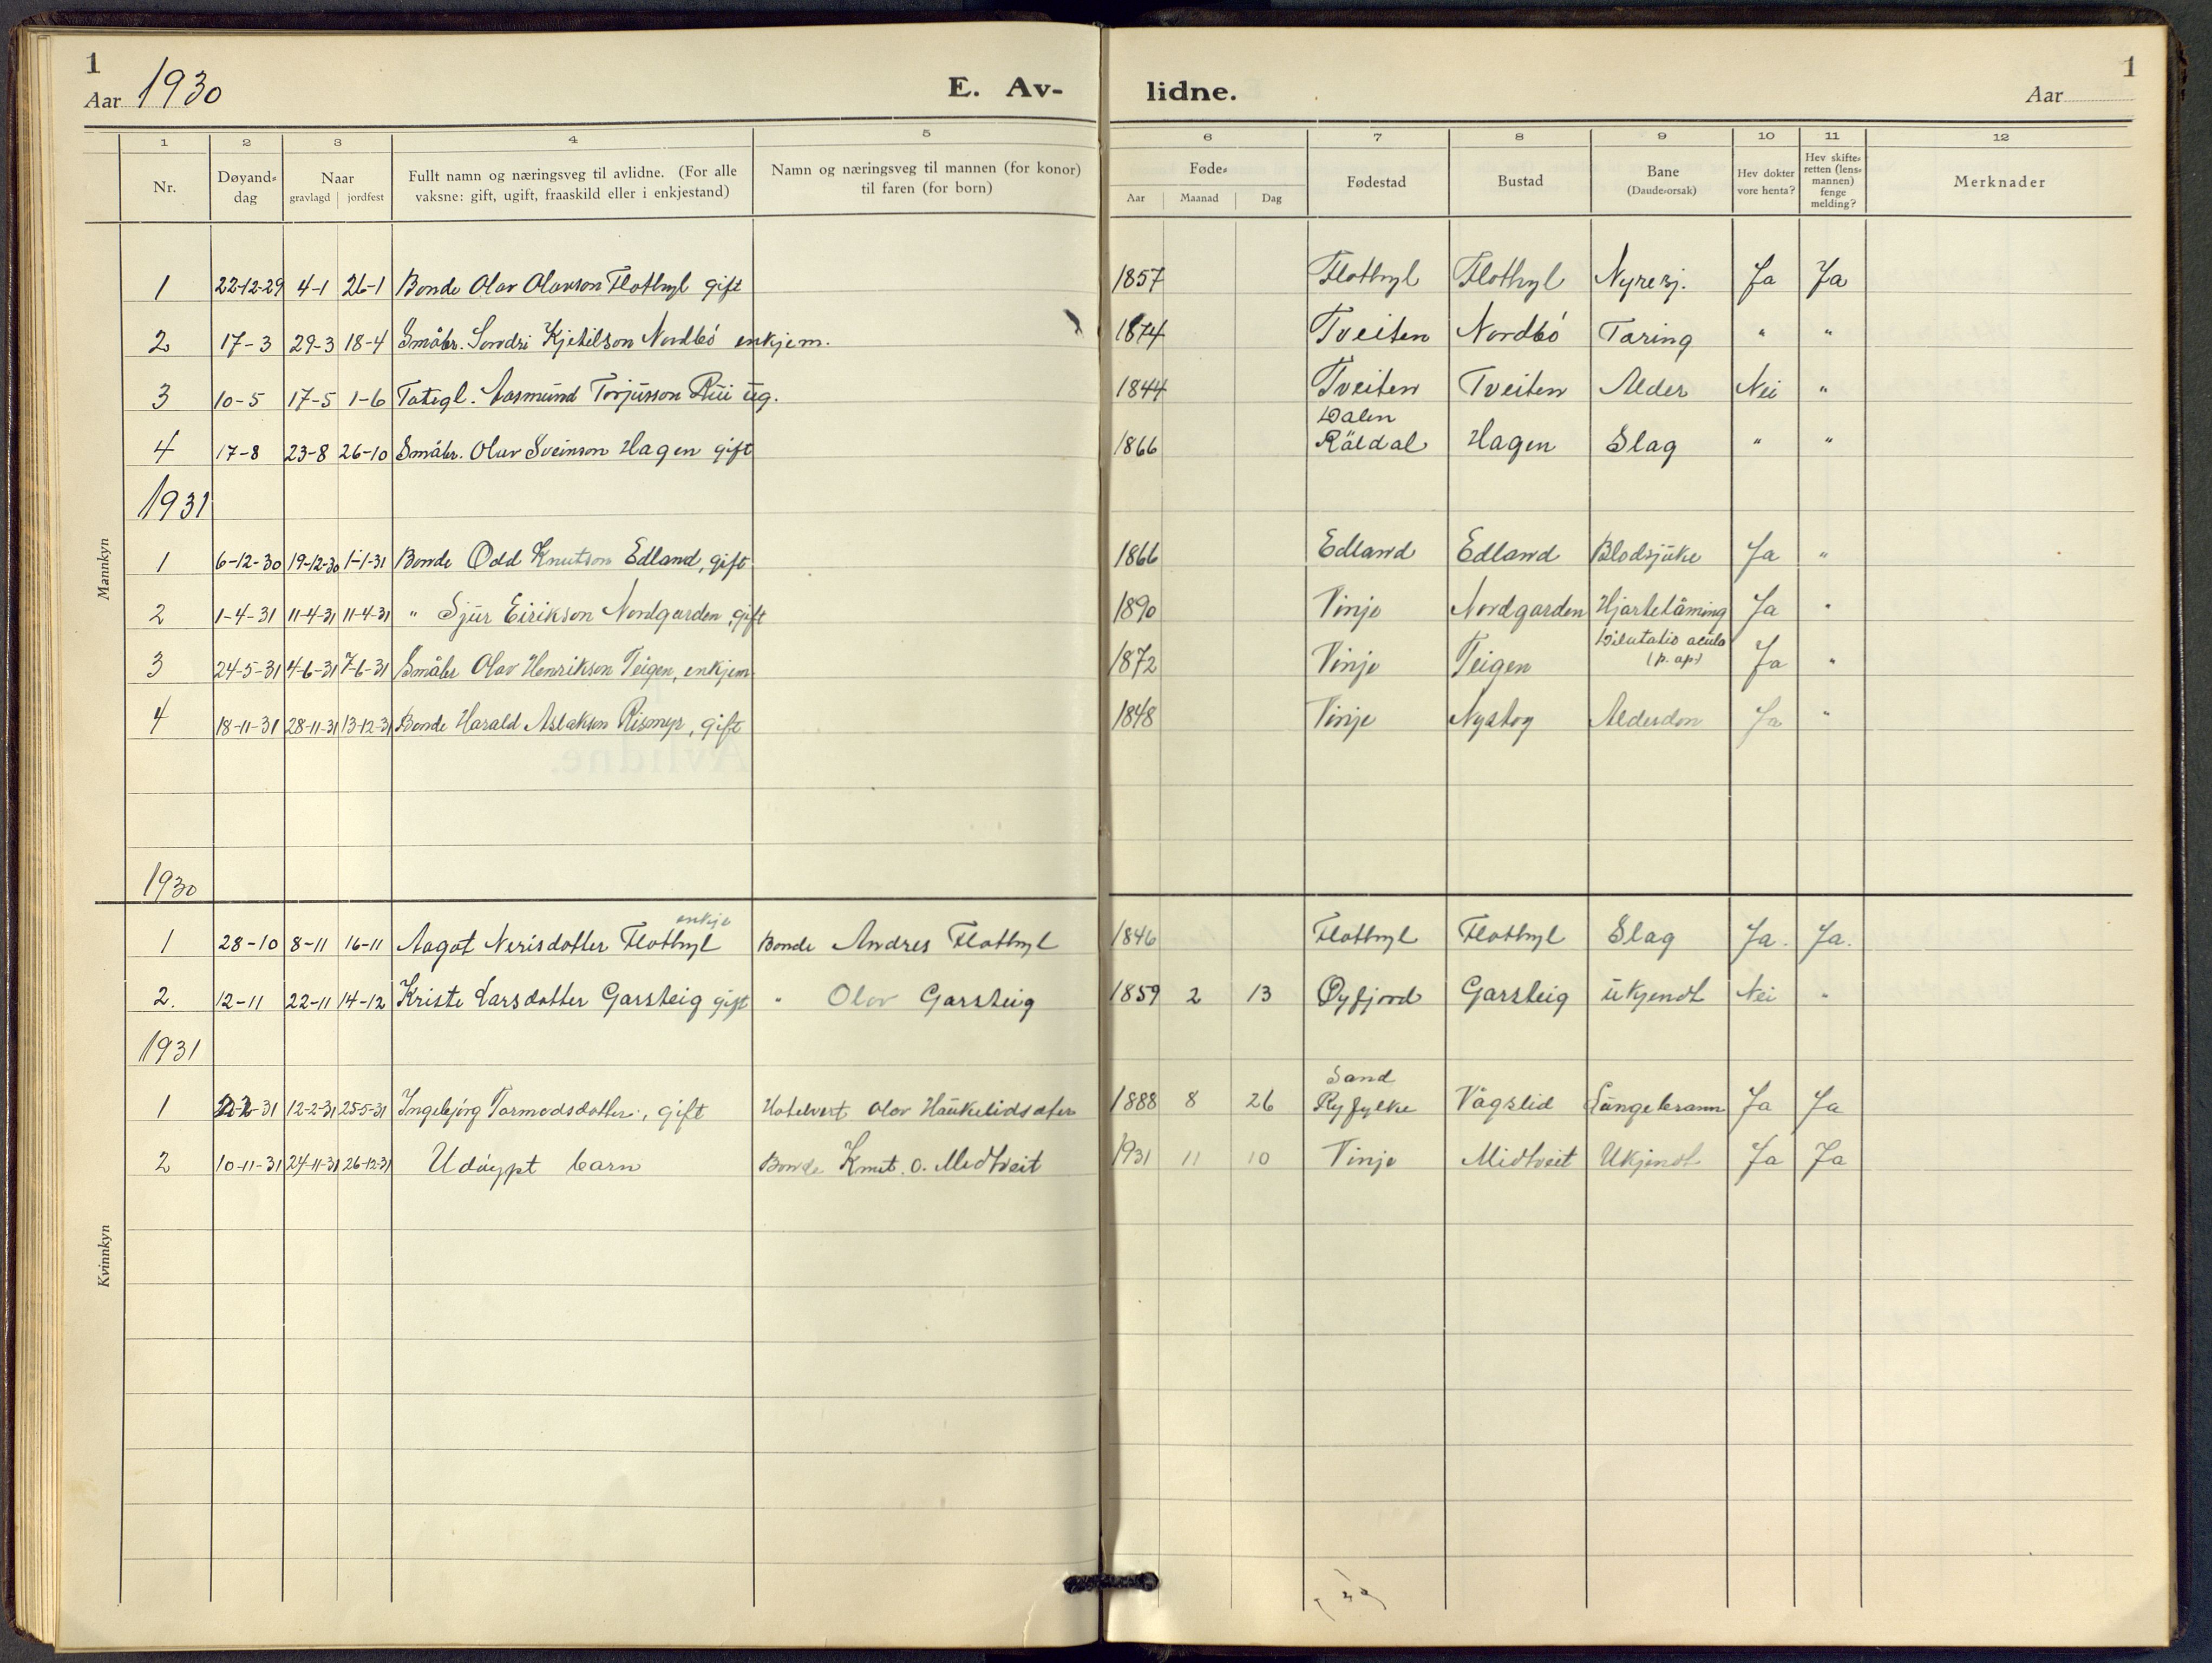 1
Aar 1930
E. Av-
lidne.
Aar
1
1 2 3 4 5 6 7 8 9 10 11 12
Nr. | Døyand-dag | Naar gravlagd | jordfest | Fullt namn og næringsveg til avlidne. (For alle vaksne: gift, ugift, fraaskild eller i enkjestand) | Namn og næringsveg til mannen (for konor) til faren (for born) | Føde- Aar | Maanad | Dag | Fødestad | Bustad | Bane (Daude-orsak) | Hev dokter vore henta? | Hev skifte-retten (lens-mannen) fenge melding? | Merknader
Mannkyn
1 22-12-29 4-1 26-1 Bonde Olav Olavson Flothyl gift 1857 Flothyl Flothyl Nyresj. Ja Ja
2 17-3 29-3 18-4 Småbr. Sondri Kjetilson Nordbó enkjem. 1874 Tveiten Nordbó Taring " "
3 10-5 17-5 1-6 Aasmund Torjusson Rui ug. 1844 Tveiten Tveiten Alder Nei "
4 17-8 23-8 26-10 Småbr. Olav Sveinson Hagen gift 1866 Dalen Räldal Hagen Slag " "
1931
1 6-12-30 19-12-30 1-1-31 Bonde Odd Knutson Edland, gift 1866 Edland Edland Blodsjuke Ja "
2 1-4-31 11-4-31 11-4-31 " Sjur Eirikson Nordgarden, gift 1890 Vinje Nordgarden Hjartelåming Ja "
3 24-5-31 4-6-31 7-6-31 Småbr Olav Henrikson Teigen, enkjem. 1872 Vinje Teigen Dilatatio acuta (p. ap) Ja "
4 18-11-31 28-11-31 13-12-31 Bonde Harald Aslakson Rismyr, gift 1848 Vinje Nystog Alderdon Ja "
1930
Kvinnkyn
1 28-10 8-11 16-11 Aagot Nerisdotter Flothyl enkje Bonde Andres Flothyl 1846 Flothyl Flothyl Slag Ja. Ja.
2. 12-11 22-11 14-12 Kriste Larsdotter Garsteig gift " Olav Garsteig 1859 2 13 Øyfjord Garsteig ukjendt Nei "
1931
1 12-2-31 25-5-31 Ingebjørg Tormodsdotter, gift Hotelvert Olav Haukelidsæter 1888 8 26 Sand Ryfylke Vågslid Lungebrann Ja Ja
2 10-11-31 24-11-31 26-12-31 Udøypt barn Bonde Knut. O. Midtveit 1931 11 10 Vinje Midtveit Ukjendt Ja Ja